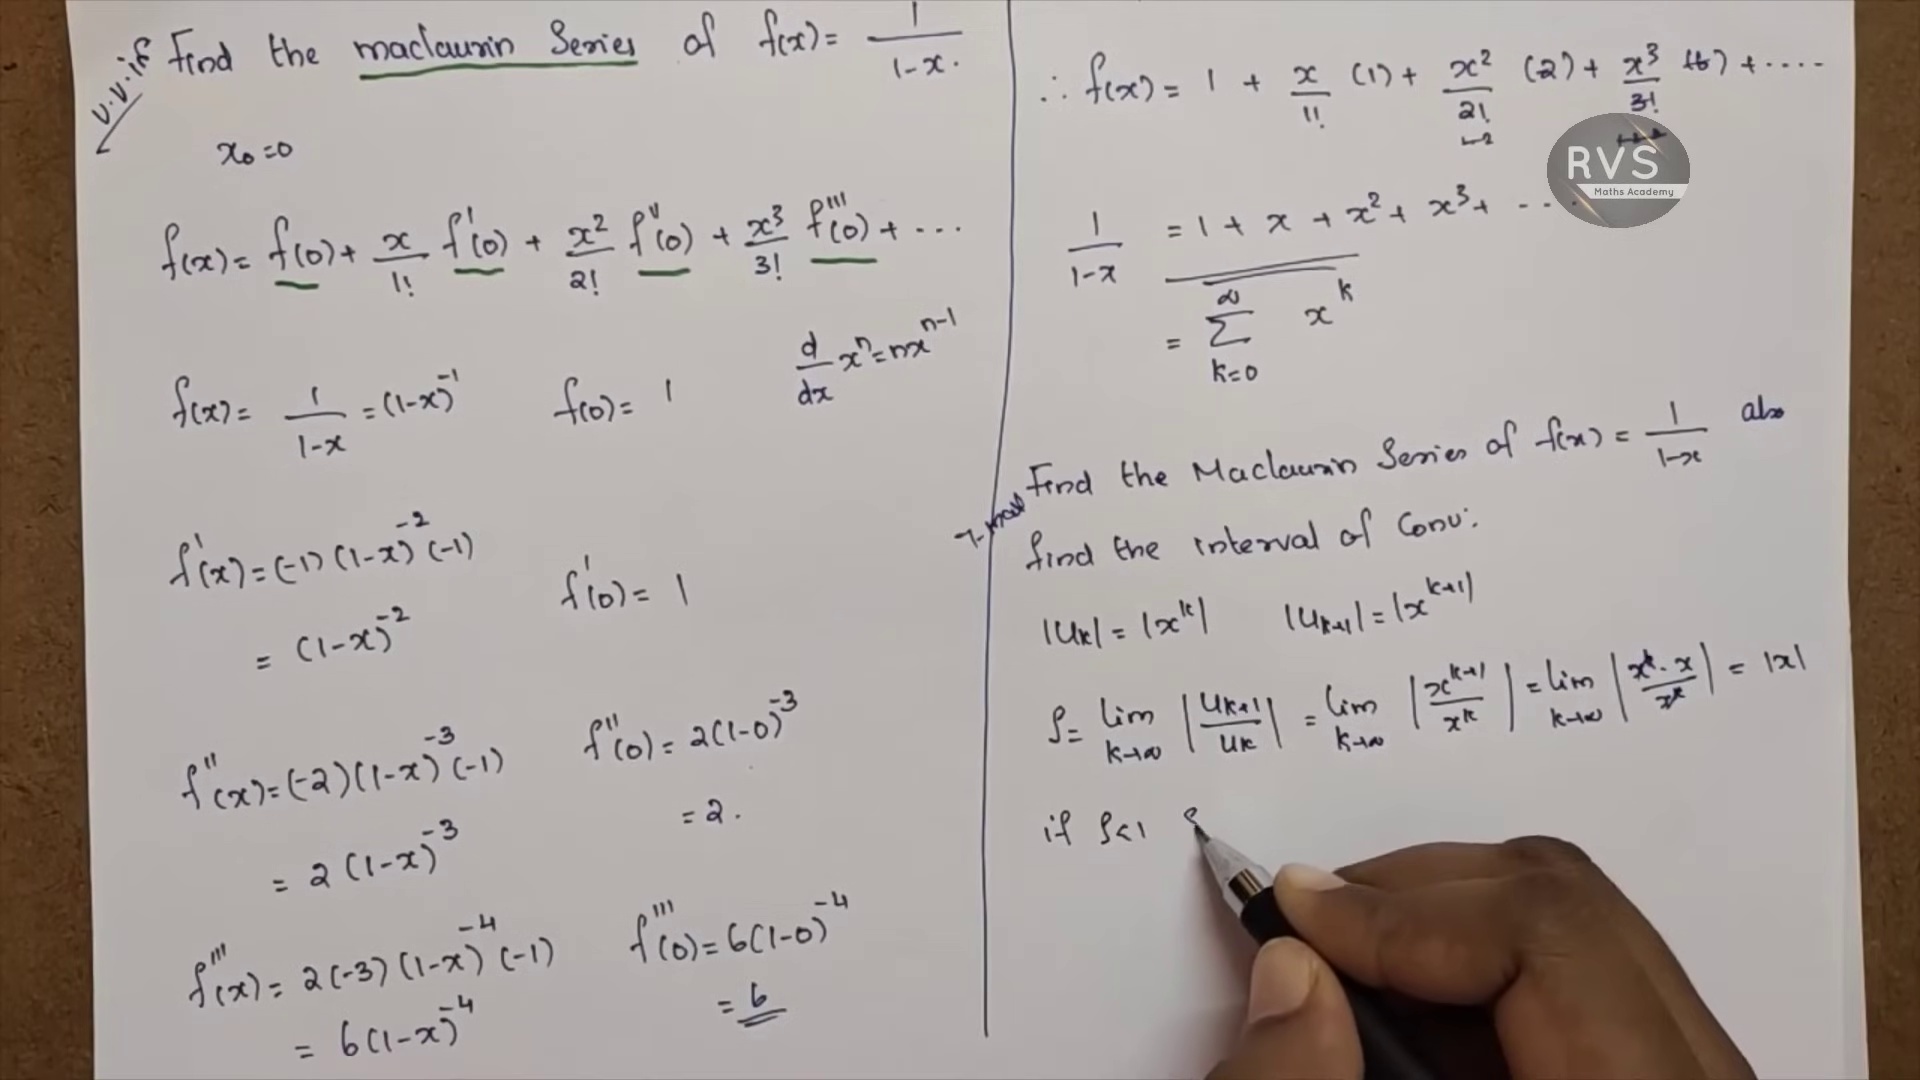 V.V.if
Find the maclaurin Series of f(x) = 1/(1-x).
x₀=0
f(x) = f(0) + x/1! f'(0) + x²/2! f''(0) + x³/3! f'''(0) + ...
d/dx xⁿ = nxⁿ⁻¹
f(x) = 1/(1-x) = (1-x)⁻¹ f(0) = 1
f'(x) = (-1)(1-x)⁻²(-1) f'(0) = 1
= (1-x)⁻²
f''(x) = (-2)(1-x)⁻³(-1) f''(0) = 2(1-0)⁻³
= 2(1-x)⁻³ = 2.
f'''(x) = 2(-3)(1-x)⁻⁴(-1) f'''(0) = 6(1-0)⁻⁴
= 6(1-x)⁻⁴ = 6
∴ f(x) = 1 + x/1! (1) + x²/2! (2) + x³/3! (6) + ....
RVS
Maths Academy
1/(1-x) = 1 + x + x² + x³ + ...
= ∑_{k=0}^{∞} x^k
Find the Maclaurin Series of f(x) = 1/(1-x) also
find the interval of Conv:
|U_k| = |x^k| |U_{k+1}| = |x^{k+1}|
ρ = lim_{k→∞} |U_{k+1}/U_k| = lim_{k→∞} |x^{k+1}/x^k| = lim_{k→∞} |x^k·x/x^k| = |x|
if ρ<1